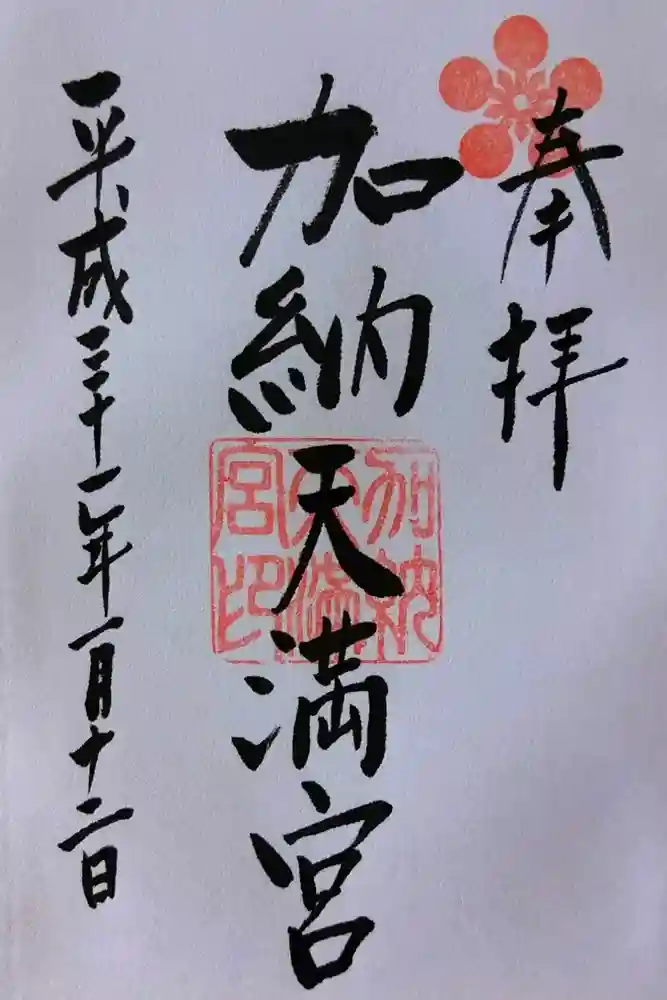 奉拝
加納天満宮
加納天満宮印
平成三十一年一月十二日